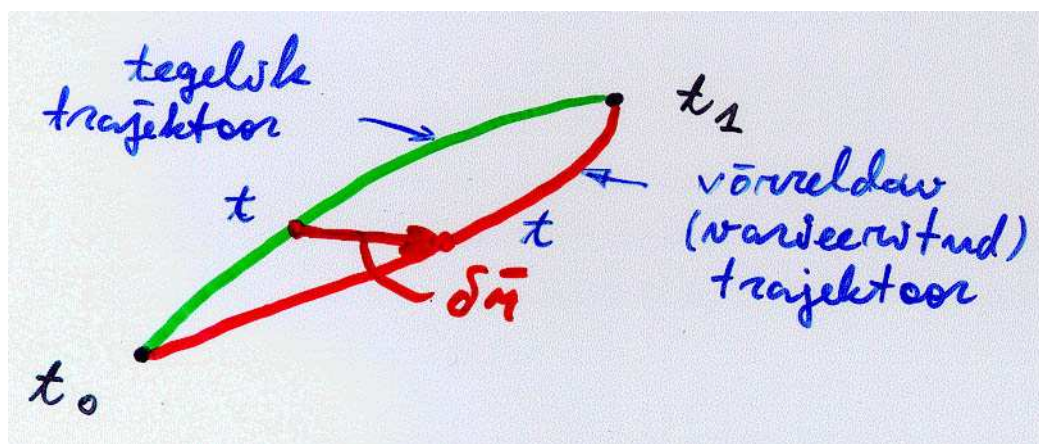 tegelik
trajektoor
t₁
t
t
võrreldav
(varieeritud)
trajektoor
δr̄
t₀